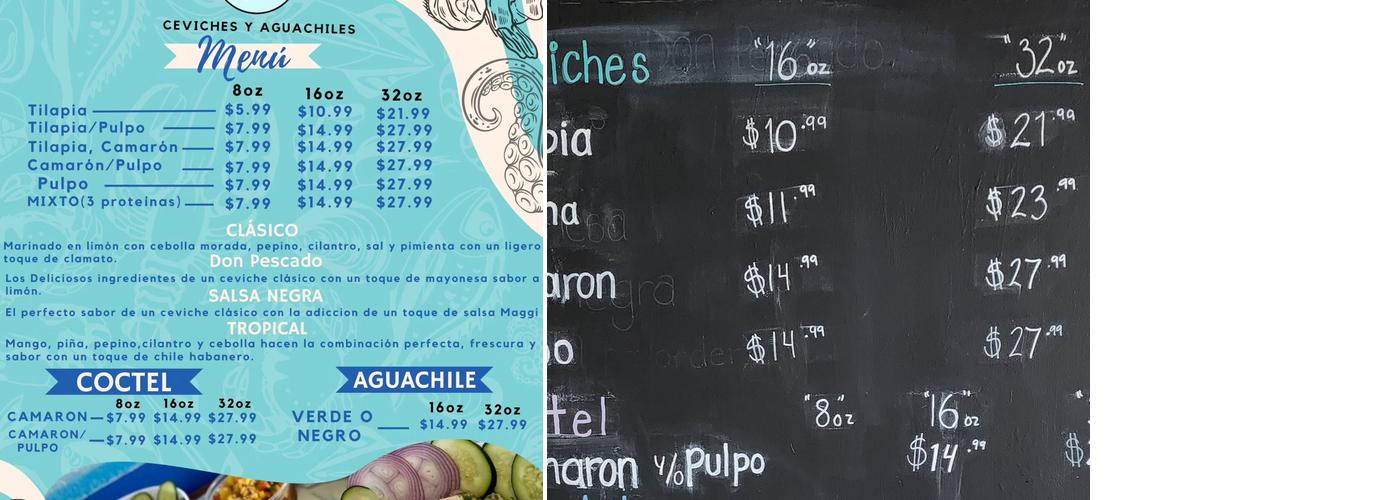 CEVICHES Y AGUACHILES
Menú
8oz 16oz 32oz
Tilapia $5.99 $10.99 $21.99
Tilapia/Pulpo $7.99 $14.99 $27.99
Tilapia, Camarón $7.99 $14.99 $27.99
Camarón/Pulpo $7.99 $14.99 $27.99
Pulpo $7.99 $14.99 $27.99
MIXTO(3 proteinas) $7.99 $14.99 $27.99
CLÁSICO
Marinado en limón con cebolla morada, pepino, cilantro, sal y pimienta con un ligero
toque de clamato.
Don Pescado
Los Deliciosos ingredientes de un ceviche clásico con un toque de mayonesa sabor a
limón.
SALSA NEGRA
El perfecto sabor de un ceviche clásico con la adiccion de un toque de salsa Maggi
TROPICAL
Mango, piña, pepino,cilantro y cebolla hacen la combinación perfecta, frescura y
sabor con un toque de chile habanero.
COCTEL
8oz 16oz 32oz
CAMARON $7.99 $14.99 $27.99
CAMARON/
PULPO $7.99 $14.99 $27.99
AGUACHILE
16oz 32oz
VERDE O
NEGRO $14.99 $27.99
iches "16"oz "32"oz
pia $10.99 $21.99
na $11.99 $23.99
aron $14.99 $27.99
po $14.99 $27.99
tel "8"oz "16"oz
$14.99
maron y/o Pulpo